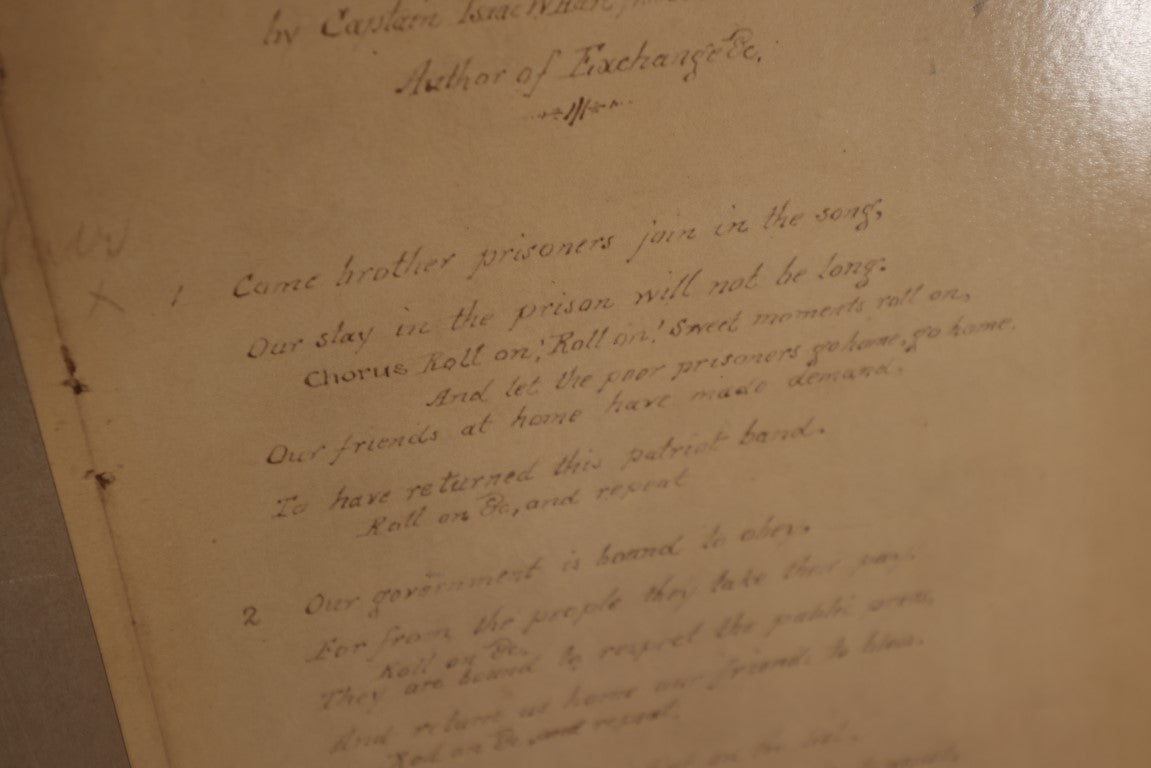 by Captain Isaac W.
Author of Exchange &c.
1 Come brother prisoners join in the song,
Our stay in the prison will not be long.
Chorus Roll on! Roll on! Sweet moments roll on,
And let the poor prisoners go home, go home.
Our friends at home have made demand,
To have returned this patriot band.
Roll on &c, and repeat
2 Our government is bound to obey,
For from the people they take their pay.
Roll on &c.
They are bound to respect the public
And return us home our friends to bless.
Roll on &c and repeat.
on the